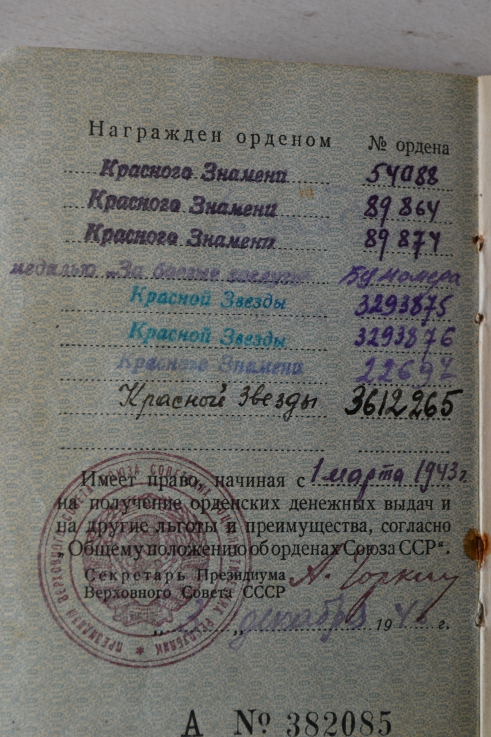 Награжден орденом № ордена
Красного Знамени 54088
Красного Знамени 89864
Красного Знамени 89877
медалью „За боевые заслуги" Без номера
Красной Звезды 3293875
Красной Звезды 3293876
Красного Знамени 22697
Красной Звезды 3612265
Имеет право, начиная с 1 марта 1943 г.
на получение орденских денежных выдач и
на другие льготы и преимущества, согласно
„Общему положению об орденах Союза ССР".
Секретарь Президиума А. Горкин
Верховного Совета СССР
„3" декабря 1946 г.
А № 382085